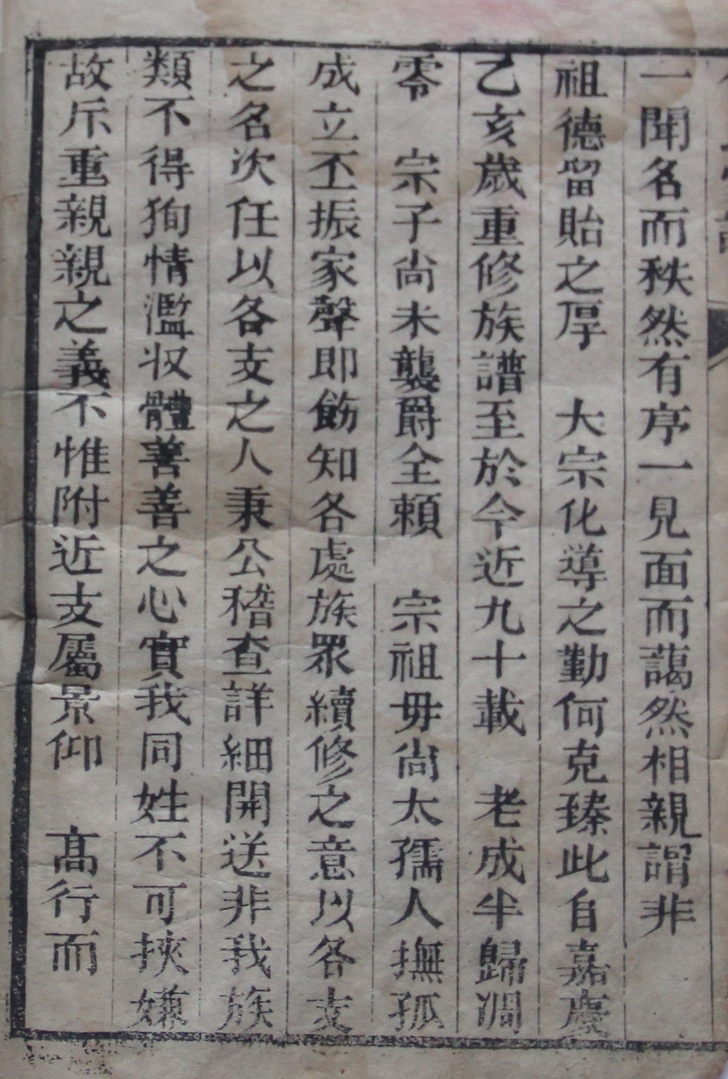 一聞名而秩然有序一見面而藹然相親謂非
祖德留貽之厚　大宗化導之勤何克臻此自嘉慶
乙亥歲重修族譜至於今近九十載　老成半歸凋
零　宗子尚未襲爵全賴　宗祖毋尚太孺人撫孤
成立丕振家聲即飭知各處族眾續修之意以各支
之名次任以各支之人秉公稽查詳細開送非我族
類不得狥情濫收體善善之心實我同姓不可挾嫌
故斥重親親之義不惟附近支屬景仰　高行而